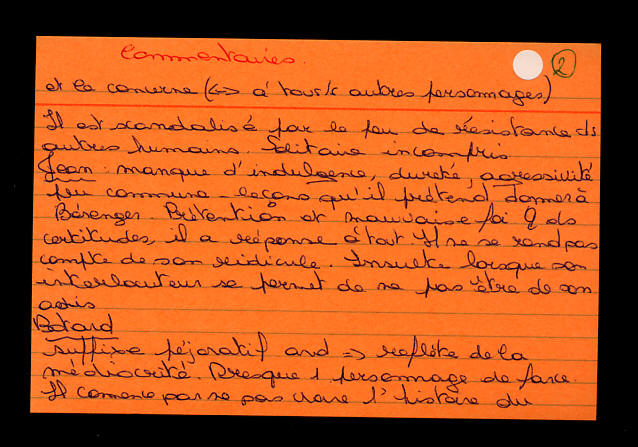 Commentaires.
2
et le concerne (<=> à tous/s autres personnages)
Il est scandalisé par le peu de résistance ds
autres humains. Solitaire incompris
Jean : manque d'indulgence, dureté, agressivité
peu commune - leçons qu'il prétend donner à
Bérenger. Prétention et mauvaise foi Q ds
certitudes, il a réponse à tout. Il ne se rend pas
compte de son ridicule. Insulte lorsque son
interlocuteur se permet de ne pas être de son
avis
Botard
suffixe péjoratif ard => reflète de la
médiocrité. Presque 1 personnage de farce.
Il comence par ne pas croire l'histoire du